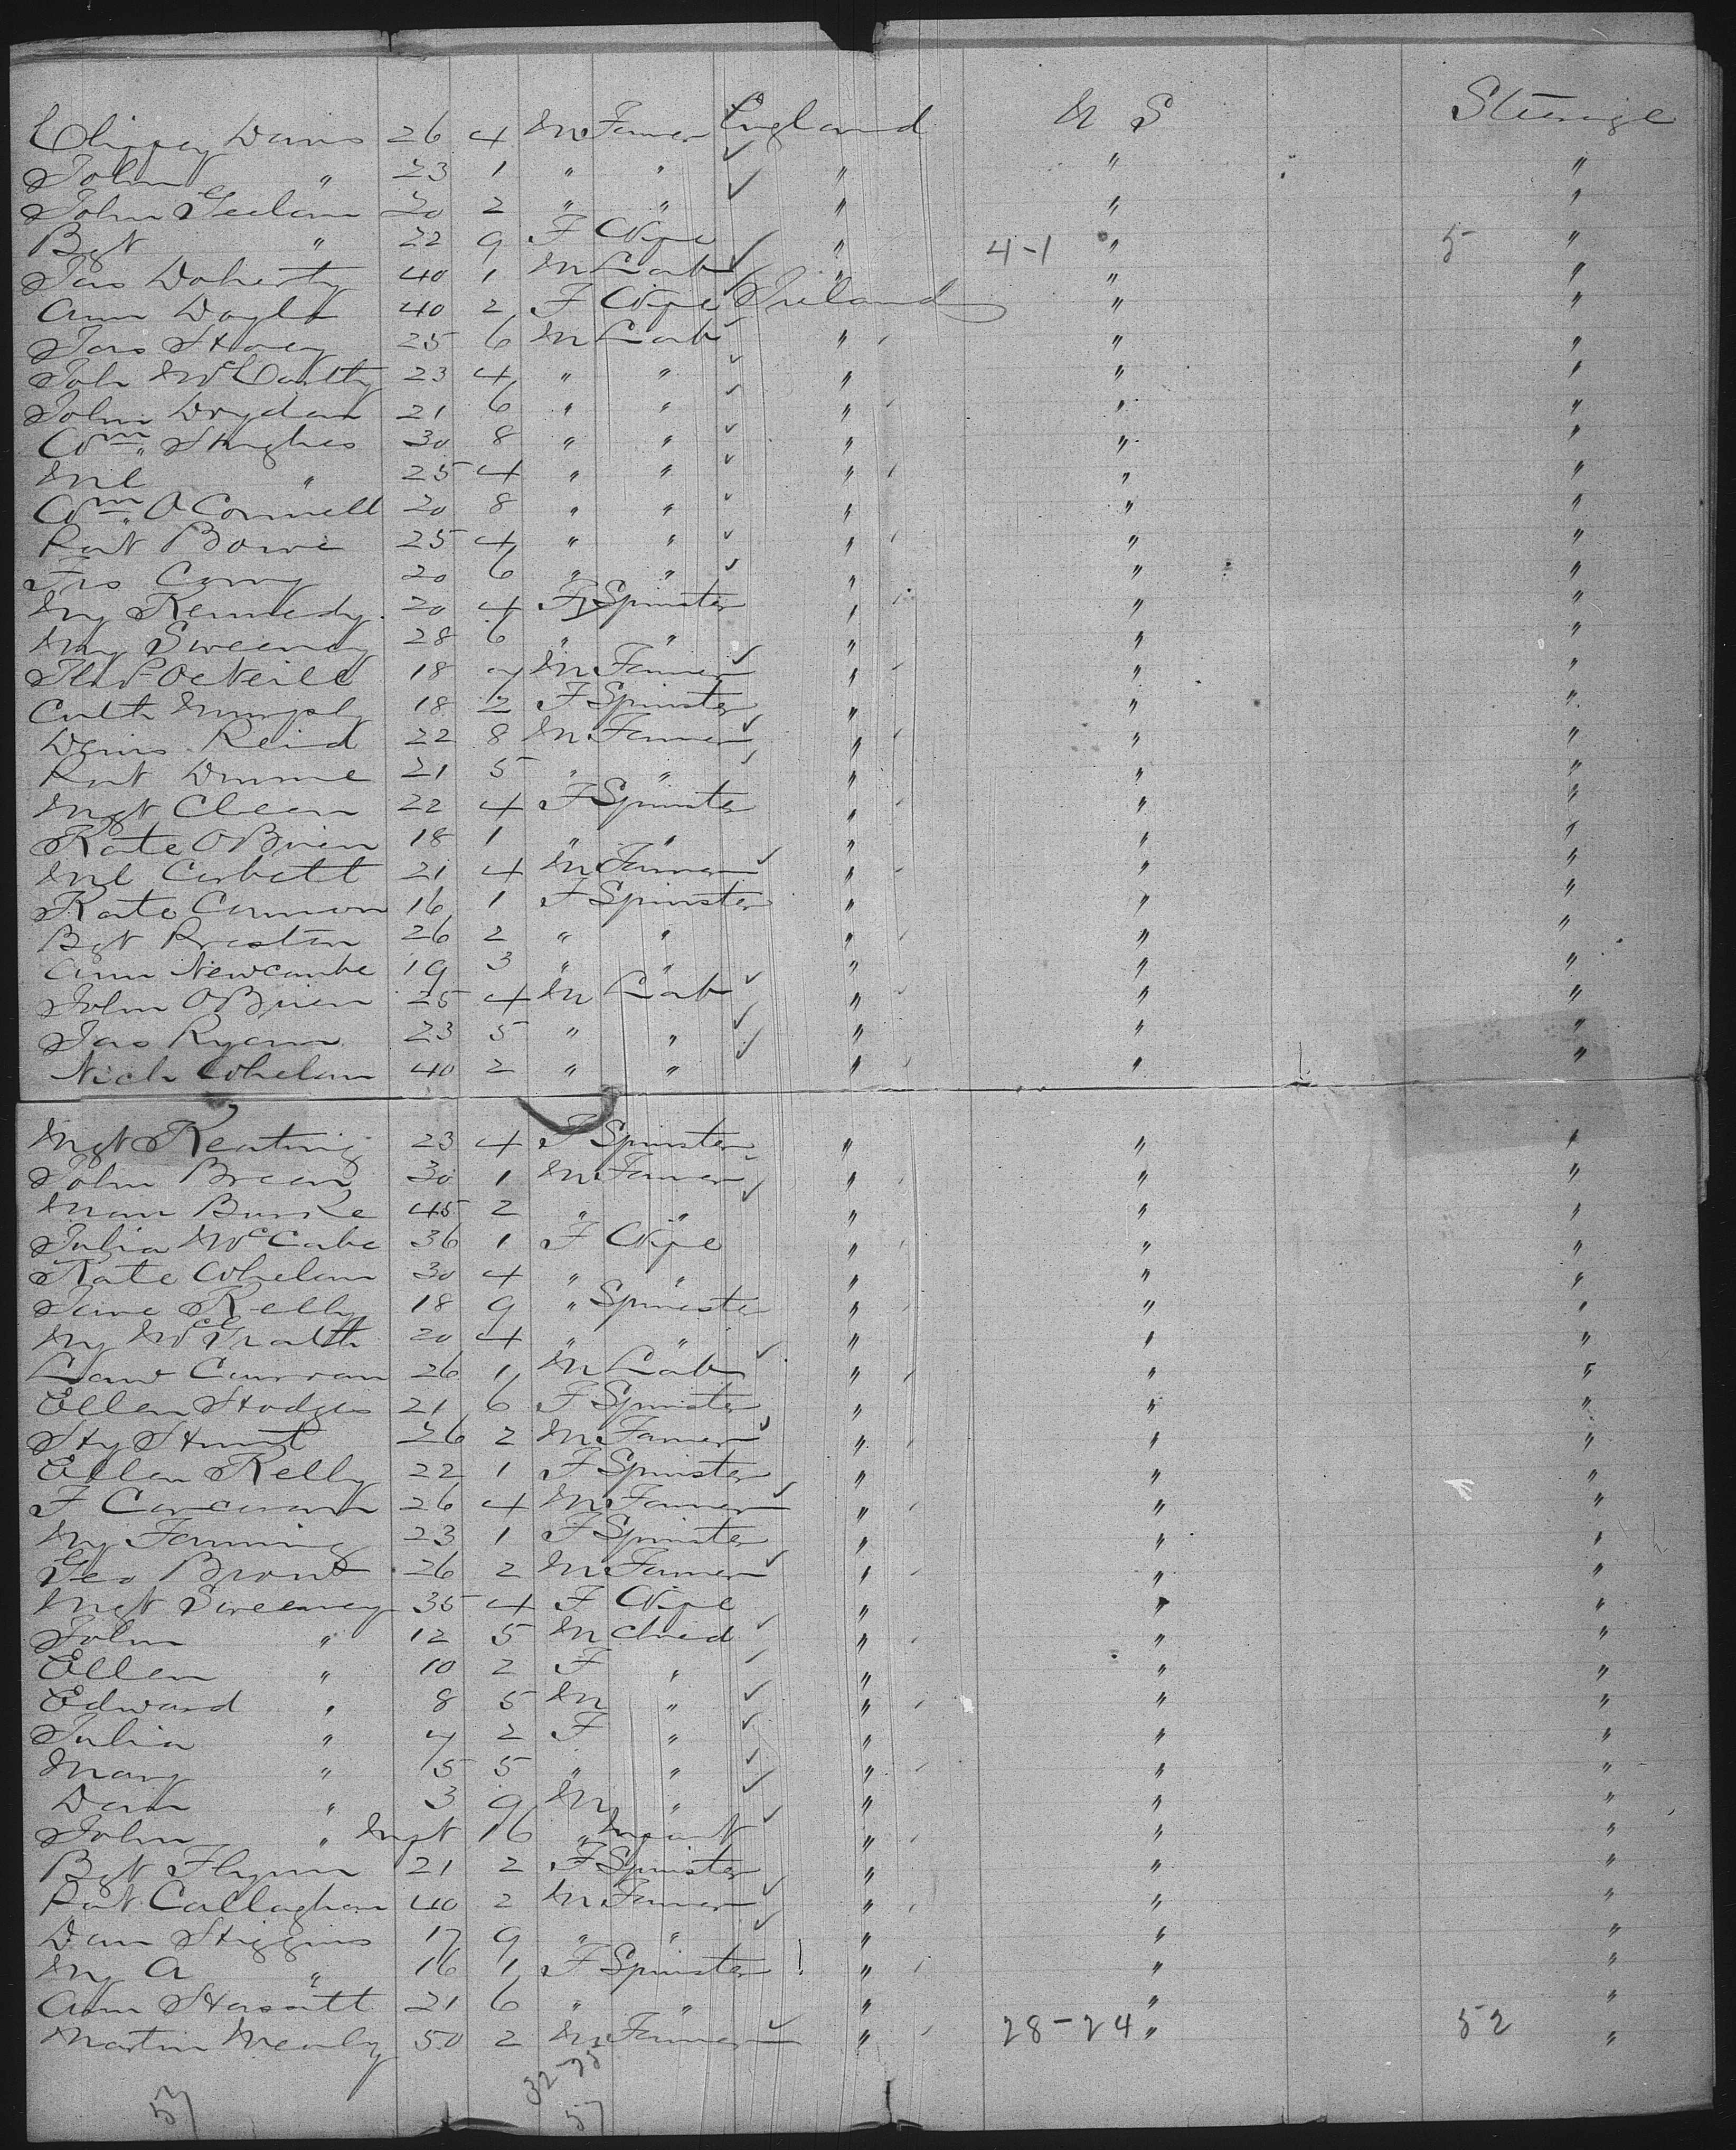 Davis 26 4 M Farmer England U S Steerage
John " 23 1 " " " " "
John Geelan 20 2 " " " " "
Bgt " 22 9 F Wife " 4-1 " 5 "
Jas Doherty 40 1 M Lab " " "
Ann Doyle 40 2 F Wife Ireland " "
Jas Hovey 25 6 M Lab " " "
Joh McCarthy 23 4 " " " " "
John Drydan 21 6 " " " " "
Wm Hughes 30 8 " " " " "
Ml " 25 4 " " " " "
Wm O Connell 20 8 " " " " "
Pat Bowe 25 4 " " " " "
Corry 20 6 " " " " "
My Kennedy 20 4 F Spinster " " "
My Sweeney 28 6 " " " " "
O'Neill 18 7 M Farmer " " "
Cath Murphy 18 2 F Spinster " " "
Denis Reid 22 8 M Farmer " " "
Pat Dunne 21 5 " " " " "
Mgt Cleen 22 4 F Spinster " " "
Kate O Brien 18 1 " " " " "
Ml Corbett 21 4 M Farmer " " "
Kate Cannon 16 1 F Spinster " " "
Bgt Preston 26 2 " " " " "
Ann Newcombe 19 3 " " " " "
John O Brien 25 4 M Lab " " "
Jas Ryan 23 5 " " " " "
Nich Whelan 40 2 " " " " "
Mgt Keating 23 4 F Spinster " " "
John Breen 30 1 M Farmer " " "
Burke 45 2 " " " " "
Julia McCabe 36 1 F Wife " " "
Kate Whelan 30 4 " " " " "
Jane Kelly 18 9 " Spinster " " "
My McGrath 20 4 " " " " "
Law Curran 26 1 M Lab " " "
Ellen Hodges 21 6 F Spinster " " "
Hy Hunt 26 2 M Farmer " " "
Ellen Kelly 22 1 F Spinster " " "
F Corcoran 26 4 M Farmer " " "
My Fanning 23 1 F Spinster " " "
Geo Brown 26 2 M Farmer " " "
Mgt Sweeney 35 4 F Wife " " "
John " 12 5 M Child " " "
Ellen " 10 2 F " " " "
Edward " 8 5 M " " " "
Julia " 7 2 F " " " "
Mary " 5 5 " " " " "
Dan " 3 9 M " " " "
John " Inft 16 " Infant " " "
Bgt Flynn 21 2 F Spinster " " "
Pat Callaghan 40 2 M Farmer " " "
Dan Higgins 17 9 " " " " "
My A " 16 1 F Spinster " " "
Ann Hassett 21 6 " " " " "
Martin Mealy 50 2 M Farmer " 28-24 " 52 "
57 32-25
57